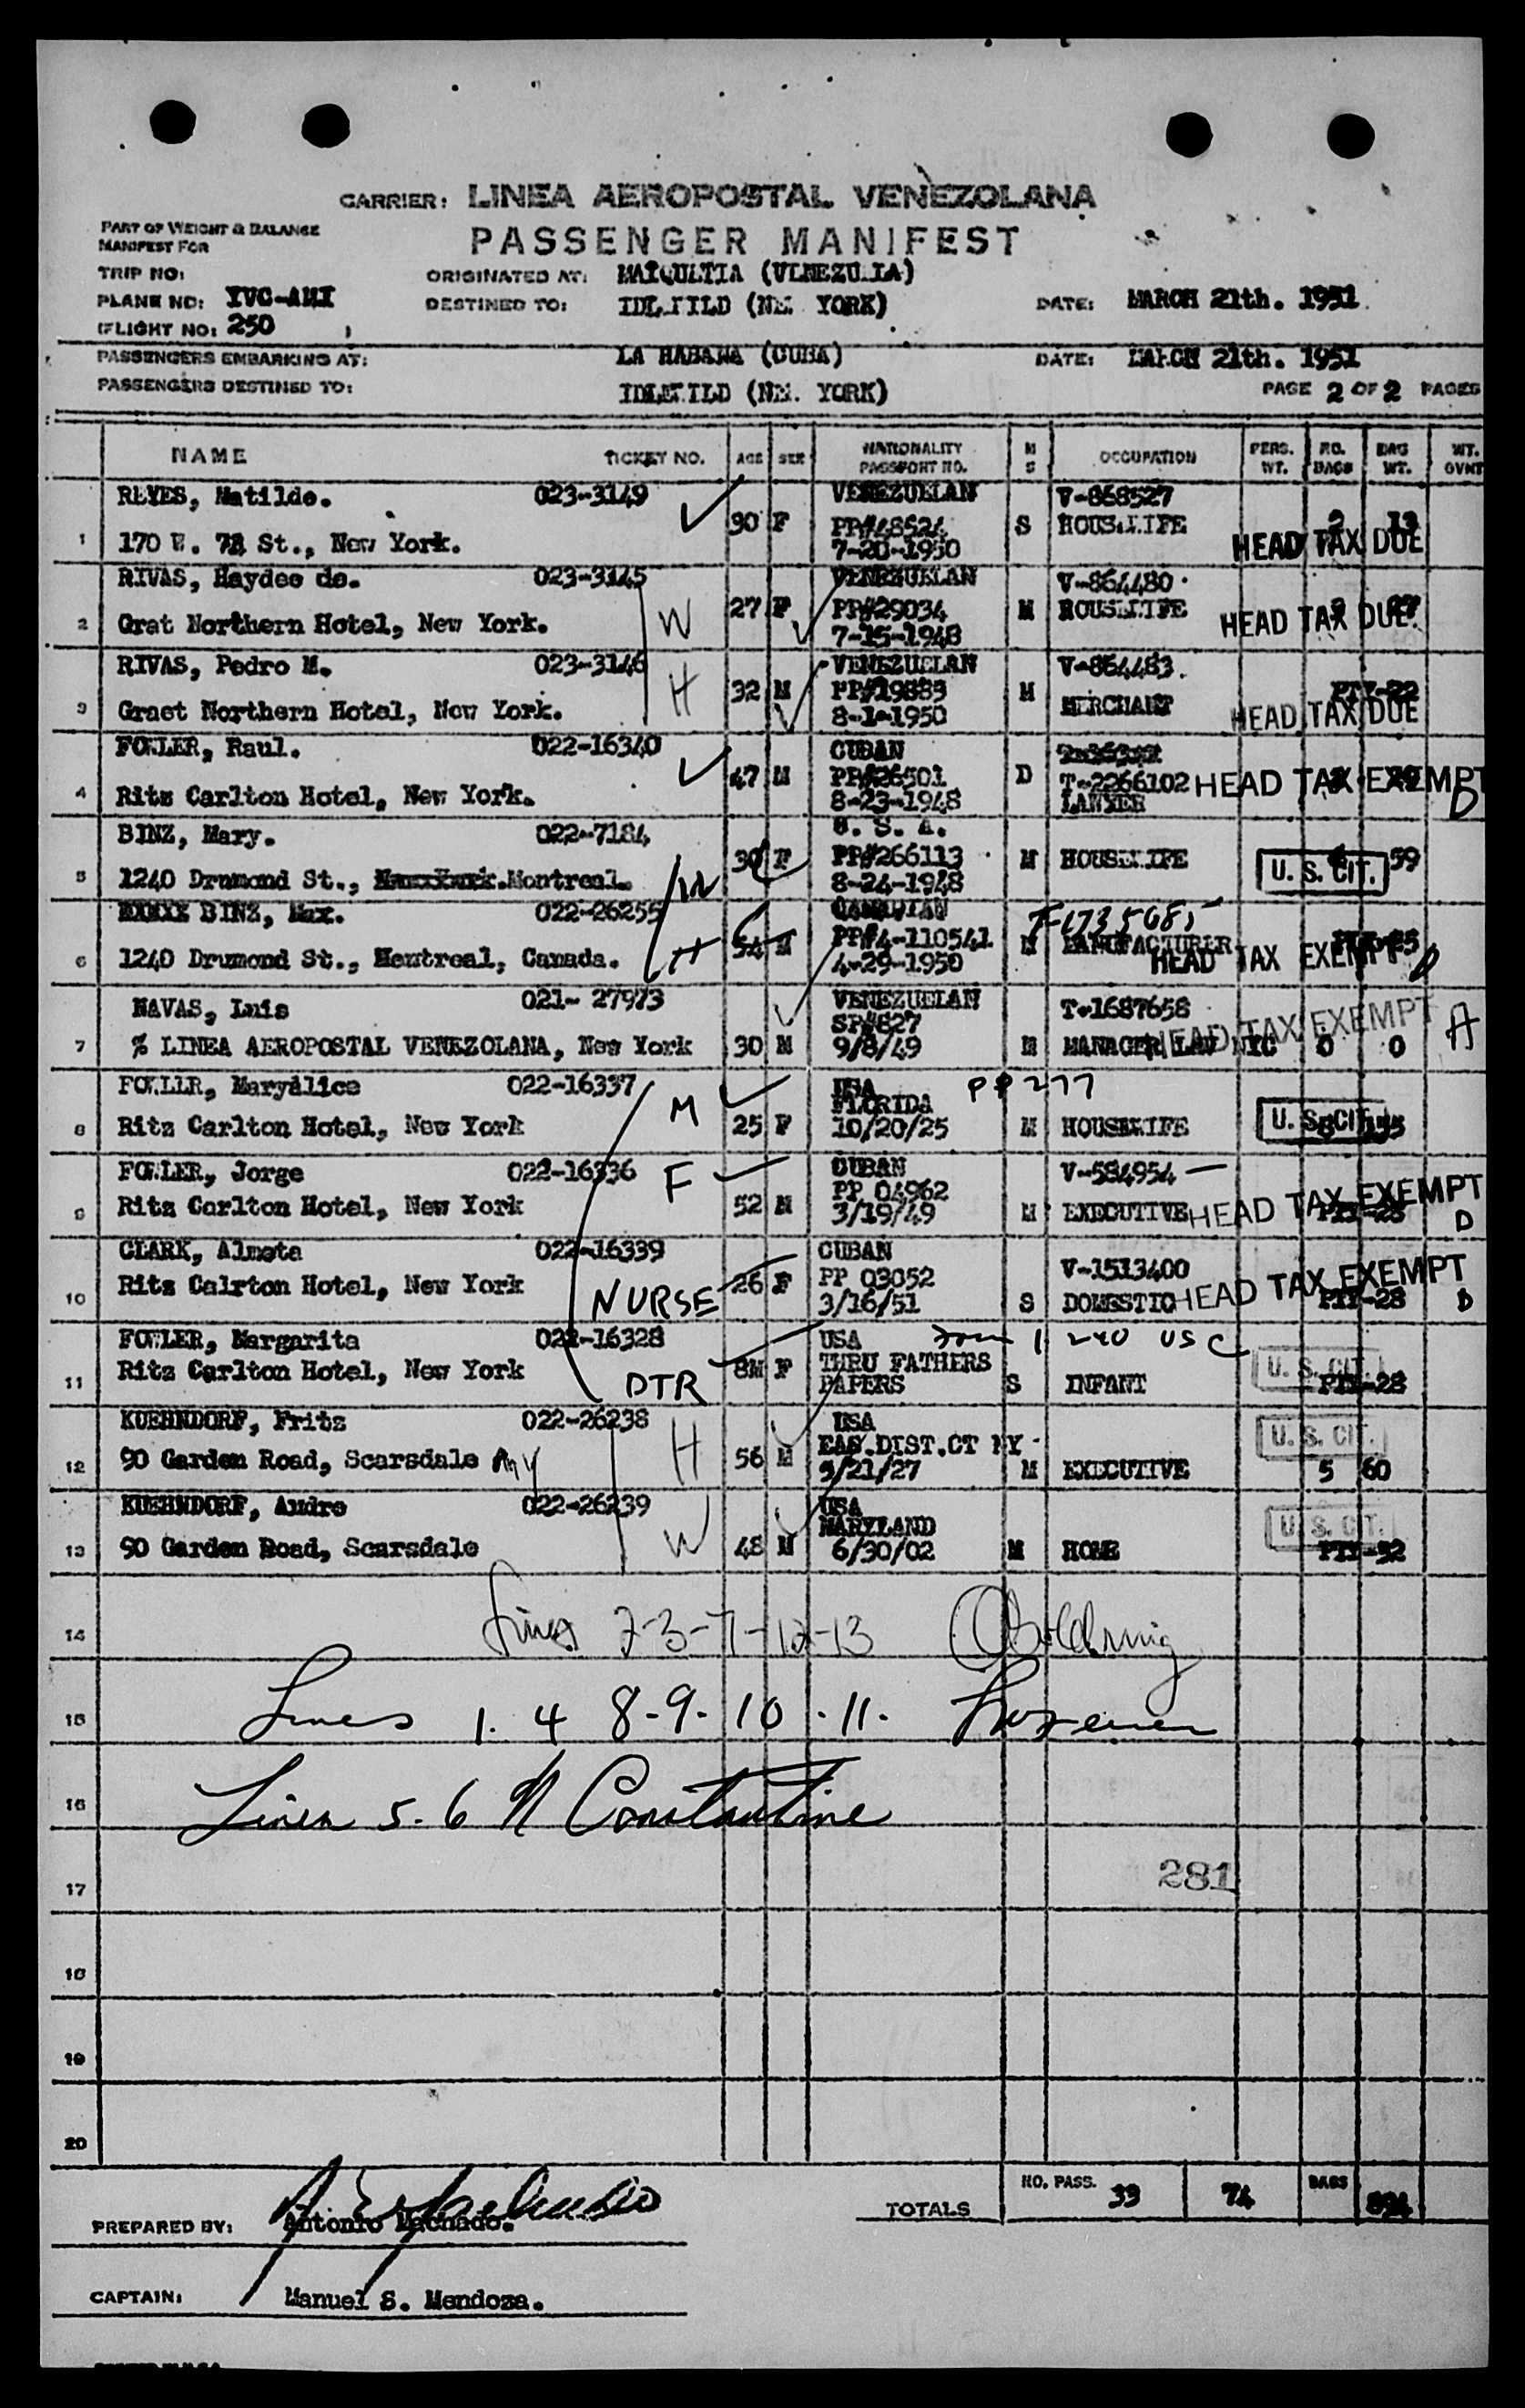 CARRIER: LINEA AEROPOSTAL VENEZOLANA
PART OF WEIGHT & BALANCE
MANIFEST FOR
PASSENGER MANIFEST
TRIP NO:
ORIGINATED AT:
PLANE NO: YVC-AMI
DESTINED TO:
DATE: MARCH 21th. 1951.
FLIGHT NO: 250
PASSENGERS EMBARKING AT: LA HABANA (CUBA) DATE: MARCH 21th. 1951
PASSENGERS DESTINED TO:
PAGE 2 OF 2 PAGES
NAME TICKET NO. AGE SEX NATIONALITY PASSPORT NO. M S OCCUPATION PERS. WT. NO. BAGS BAG WT. WT. OVNT
REYES, Matilde. 023-3149 VENEZUELAN V-868527
1 170 W. St., New York. 30 F PP#48524 S HOUSEWIFE 2 13
7-20-1950 HEAD TAX DUE
RIVAS, Haydee de. 023-3145 VENEZUELAN V-864480.
2 Grat Northern Hotel, New York. W 27 F PP#29034 M HOUSEWIFE 27
7-15-1948 HEAD TAX DUE
RIVAS, Pedro M. 023-3146 VENEZUELAN V-864483.
3 Graet Northern Hotel, New York. H 32 M PP#19889 M MERCHANT
8-1-1950 HEAD TAX DUE
FOWLER, Raul. 022-16340 CUBAN
4 Ritz Carlton Hotel, New York. 47 M PP#26501 D T-2266102 HEAD TAX EXEMPT
8-23-1948 LAWYER D
BINZ, Mary. 022-7184 U. S. A.
5 1240 Drumond St., Montreal. W 30 F PP#266113 M HOUSEWIFE U. S. CIT. 59
8-24-1948
BINZ, Max. 022-26255 CANADIAN
6 1240 Drumond St., Montreal, Canada. H 54 M PP#4-110541 M MANUFACTURER
4-29-1950 HEAD TAX EXEMPT D
NAVAS, Luis 021- 27973 VENEZUELAN T-1687658
SP#827 HEAD TAX EXEMPT A
7 % LINEA AEROPOSTAL VENEZOLANA, New York 30 M 9/8/49 M MANAGER LAV NYC 0 0
FOWLER, Maryalice 022-16337 USA PP 277
FLORIDA
8 Ritz Carlton Hotel, New York M 25 F 10/20/25 M HOUSEWIFE U. S. CIT.
FOWLER, Jorge 022-16336 F CUBAN V-584954
PP 04962
9 Ritz Carlton Hotel, New York 52 M 3/19/49 M EXECUTIVE HEAD TAX EXEMPT D
CLARK, Almeta 022-16339 CUBAN V-1513400
10 Ritz Calrton Hotel, New York NURSE 26 F PP 03052
3/16/51 S DOMESTIC HEAD TAX EXEMPT PTY-28 D
FOWLER, Margarita 022-16328 USA 1 240 USC
11 Ritz Carlton Hotel, New York DTR 8M F THRU FATHERS
PAPERS S INFANT U. S. CIT. PTY-28
KUEHNDORF, Fritz 022-26238 USA U. S. CIT.
12 90 Garden Road, Scarsdale NY H 56 M EAS.DIST.CT NY
5/21/27 M EXECUTIVE 5 60
KUEHNDORF, Audre 022-26239 USA U. S. CIT.
MARYLAND
13 90 Garden Road, Scarsdale W 48 M 6/30/02 M HOME PTY-52
14 Lines 2-3-7-12-13
15 Lines 1. 4 8-9-10.11.
16 Lines 5-6 N Constantine
17 281
18
19
20
TOTALS NO. PASS. 33 74 BAGS 894
PREPARED BY: Antonio Machado.
CAPTAIN: Manuel S. Mendoza.